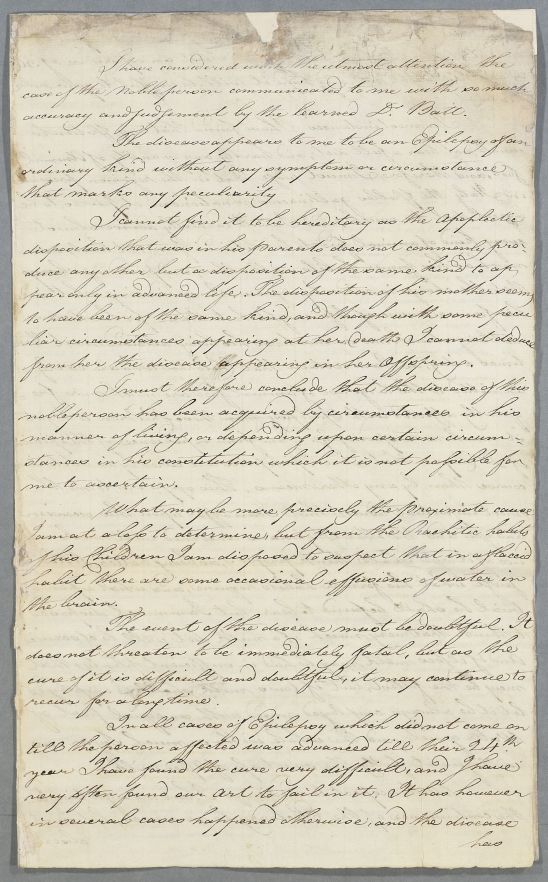 I have considered with the utmost attention the
case of the Noble person communicated to me with so much
accuracy and judgement by the learned Dr. Ball.
The disease appears to me to be an Epilepsy of an
ordinary kind without any symptom or circumstance
that marks any peculiarity
I cannot find it to be hereditary as the Apoplectic
disposition that was in his Parents does not commonly pro-
duce any other but a disposition of the same kind to ap
pear only in advanced life. The disposition of his mother seems
to have been of the same kind, and though with some pecu
liar circumstances appearing at her death I cannot deduce
from her the disease appearing in her Offspring.
I must therefore conclude that the disease of this
noble person has been acquired by circumstances in his
manner of living, or depending upon certain circum=
stances in his constitution which it is not possible for
me to ascertain.
What may be more precisely the Proximate cause
I am at a loss to determine, but from the Rachitic habits
of his Children I am disposed to suspect that in a flaccid
habit there are some occasional effusions of water in
the brain.
The event of the disease must be doubtful. It
does not threaten to be immediately fatal, but as the
cure of it is difficult and doubtful, it may continue to
recur for a long time.
In all cases of Epilepsy which did not come on
till the person affected was advanced till their 24th
year I have found the cure very difficult, and I have
very often found our art to fail in it. It has however
in several cases happened otherwise, and the disease
has